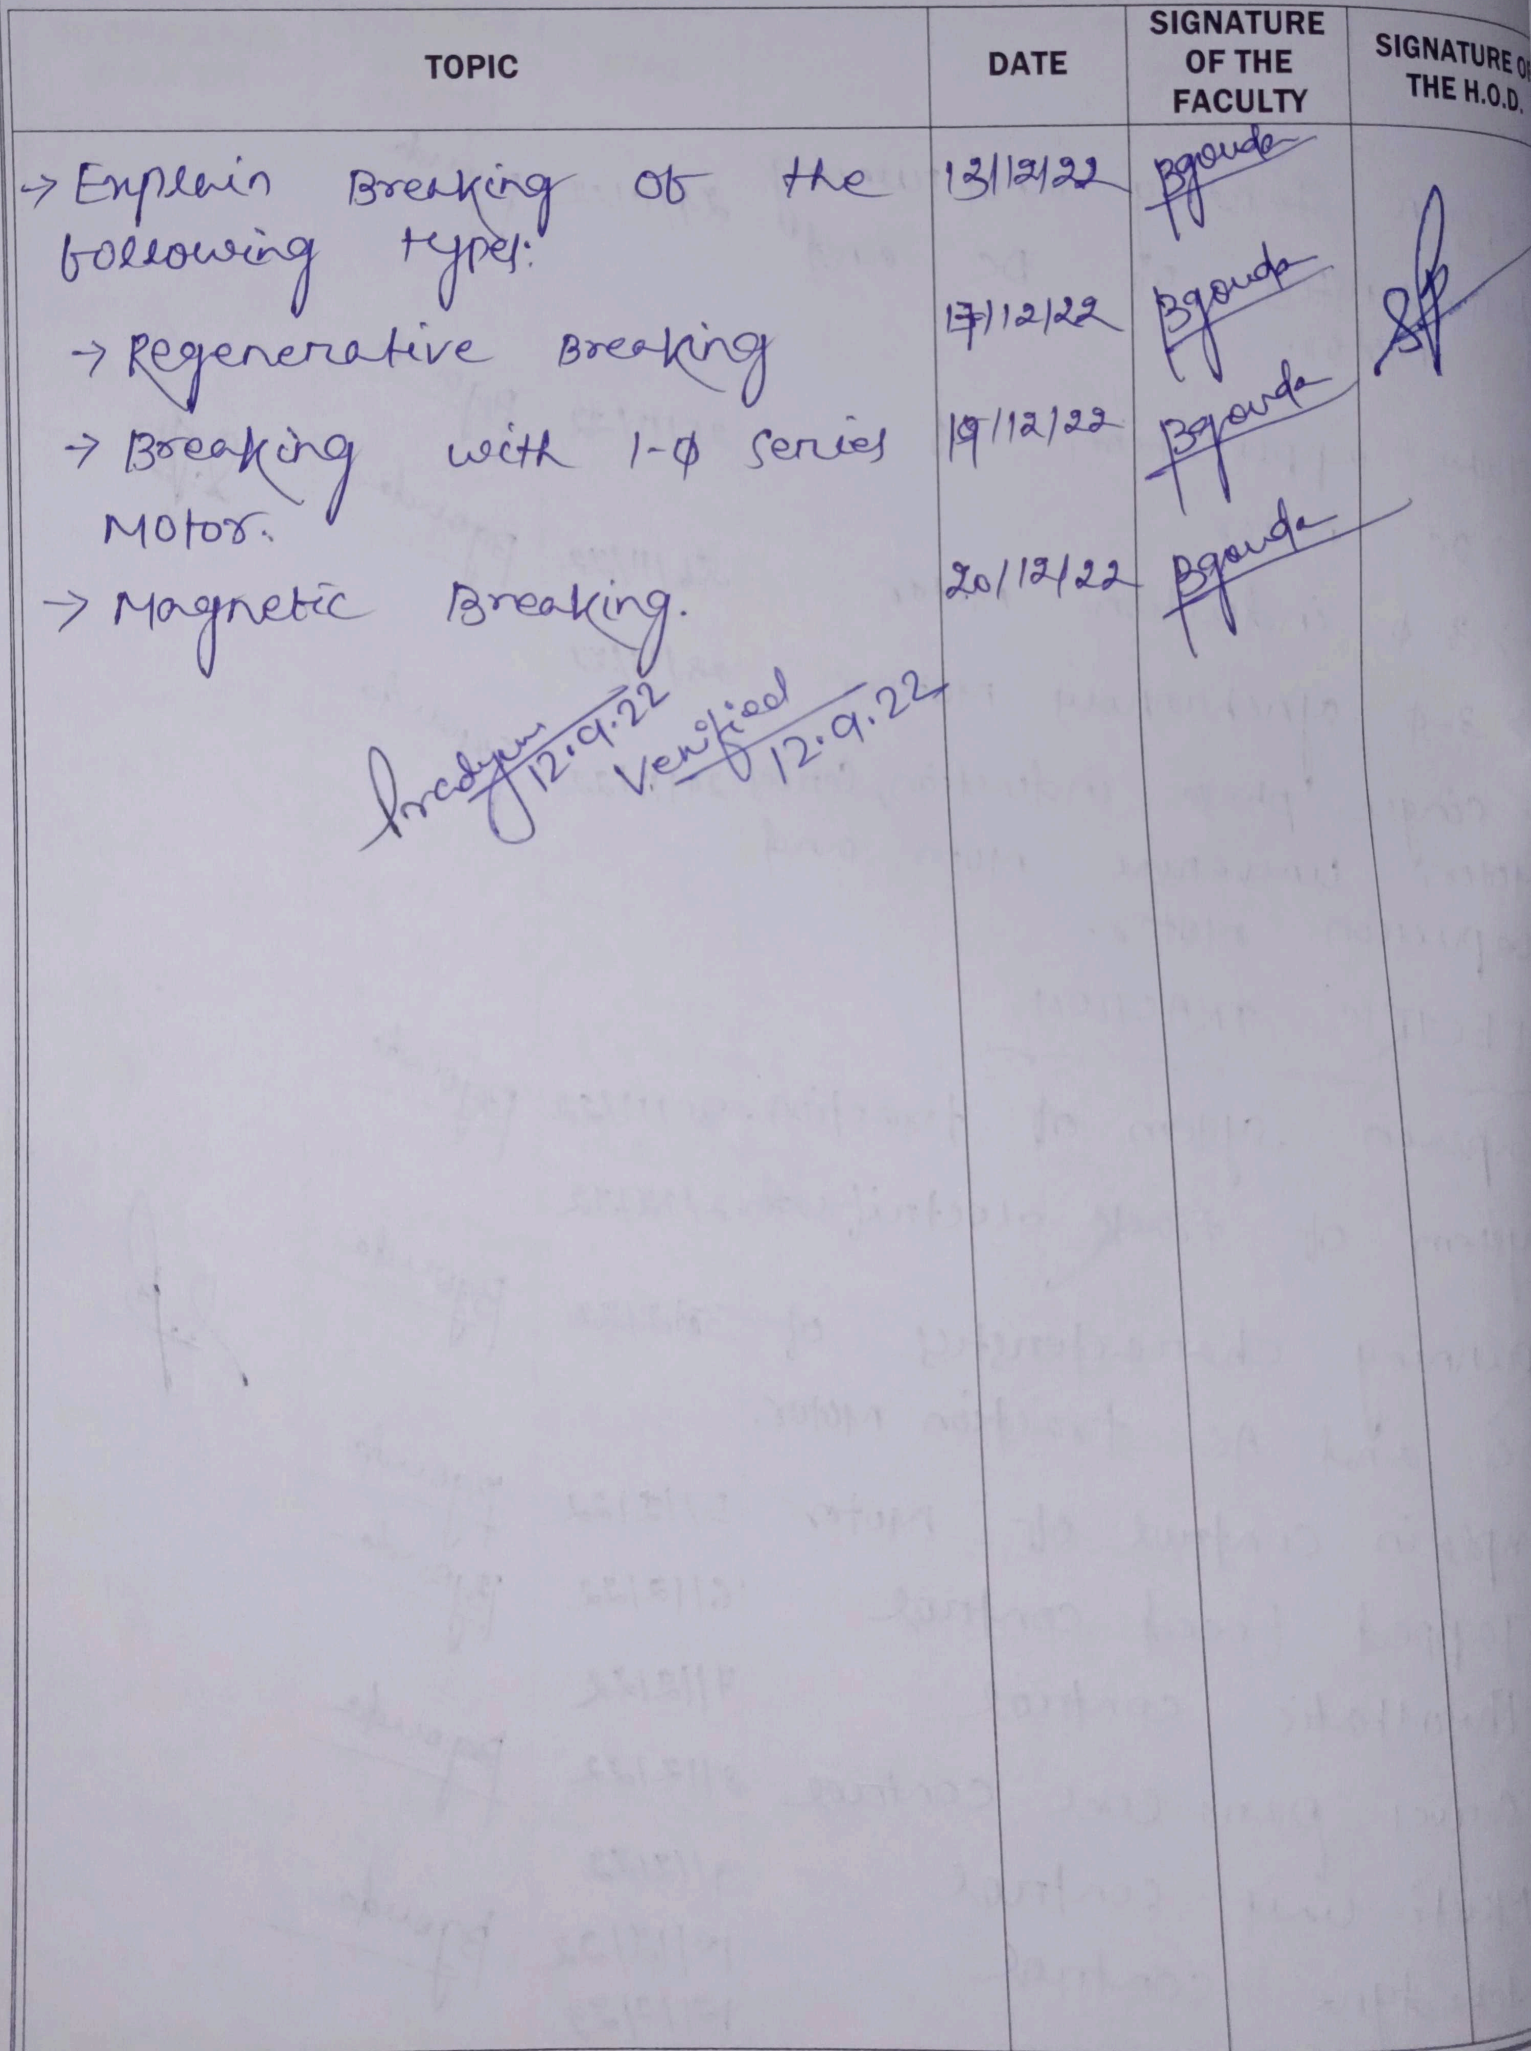 TOPIC DATE SIGNATURE OF THE FACULTY SIGNATURE OF THE H.O.D.
→ Explain Breaking of the 13/12/22 Bgouda
following types:
→ Regenerative Breaking 17/12/22 Bgouda
→ Breaking with 1-φ series 19/12/22 Bgouda
Motor.
→ Magnetic Breaking. 20/12/22 Bgouda
12.9.22
Verified
12.9.22